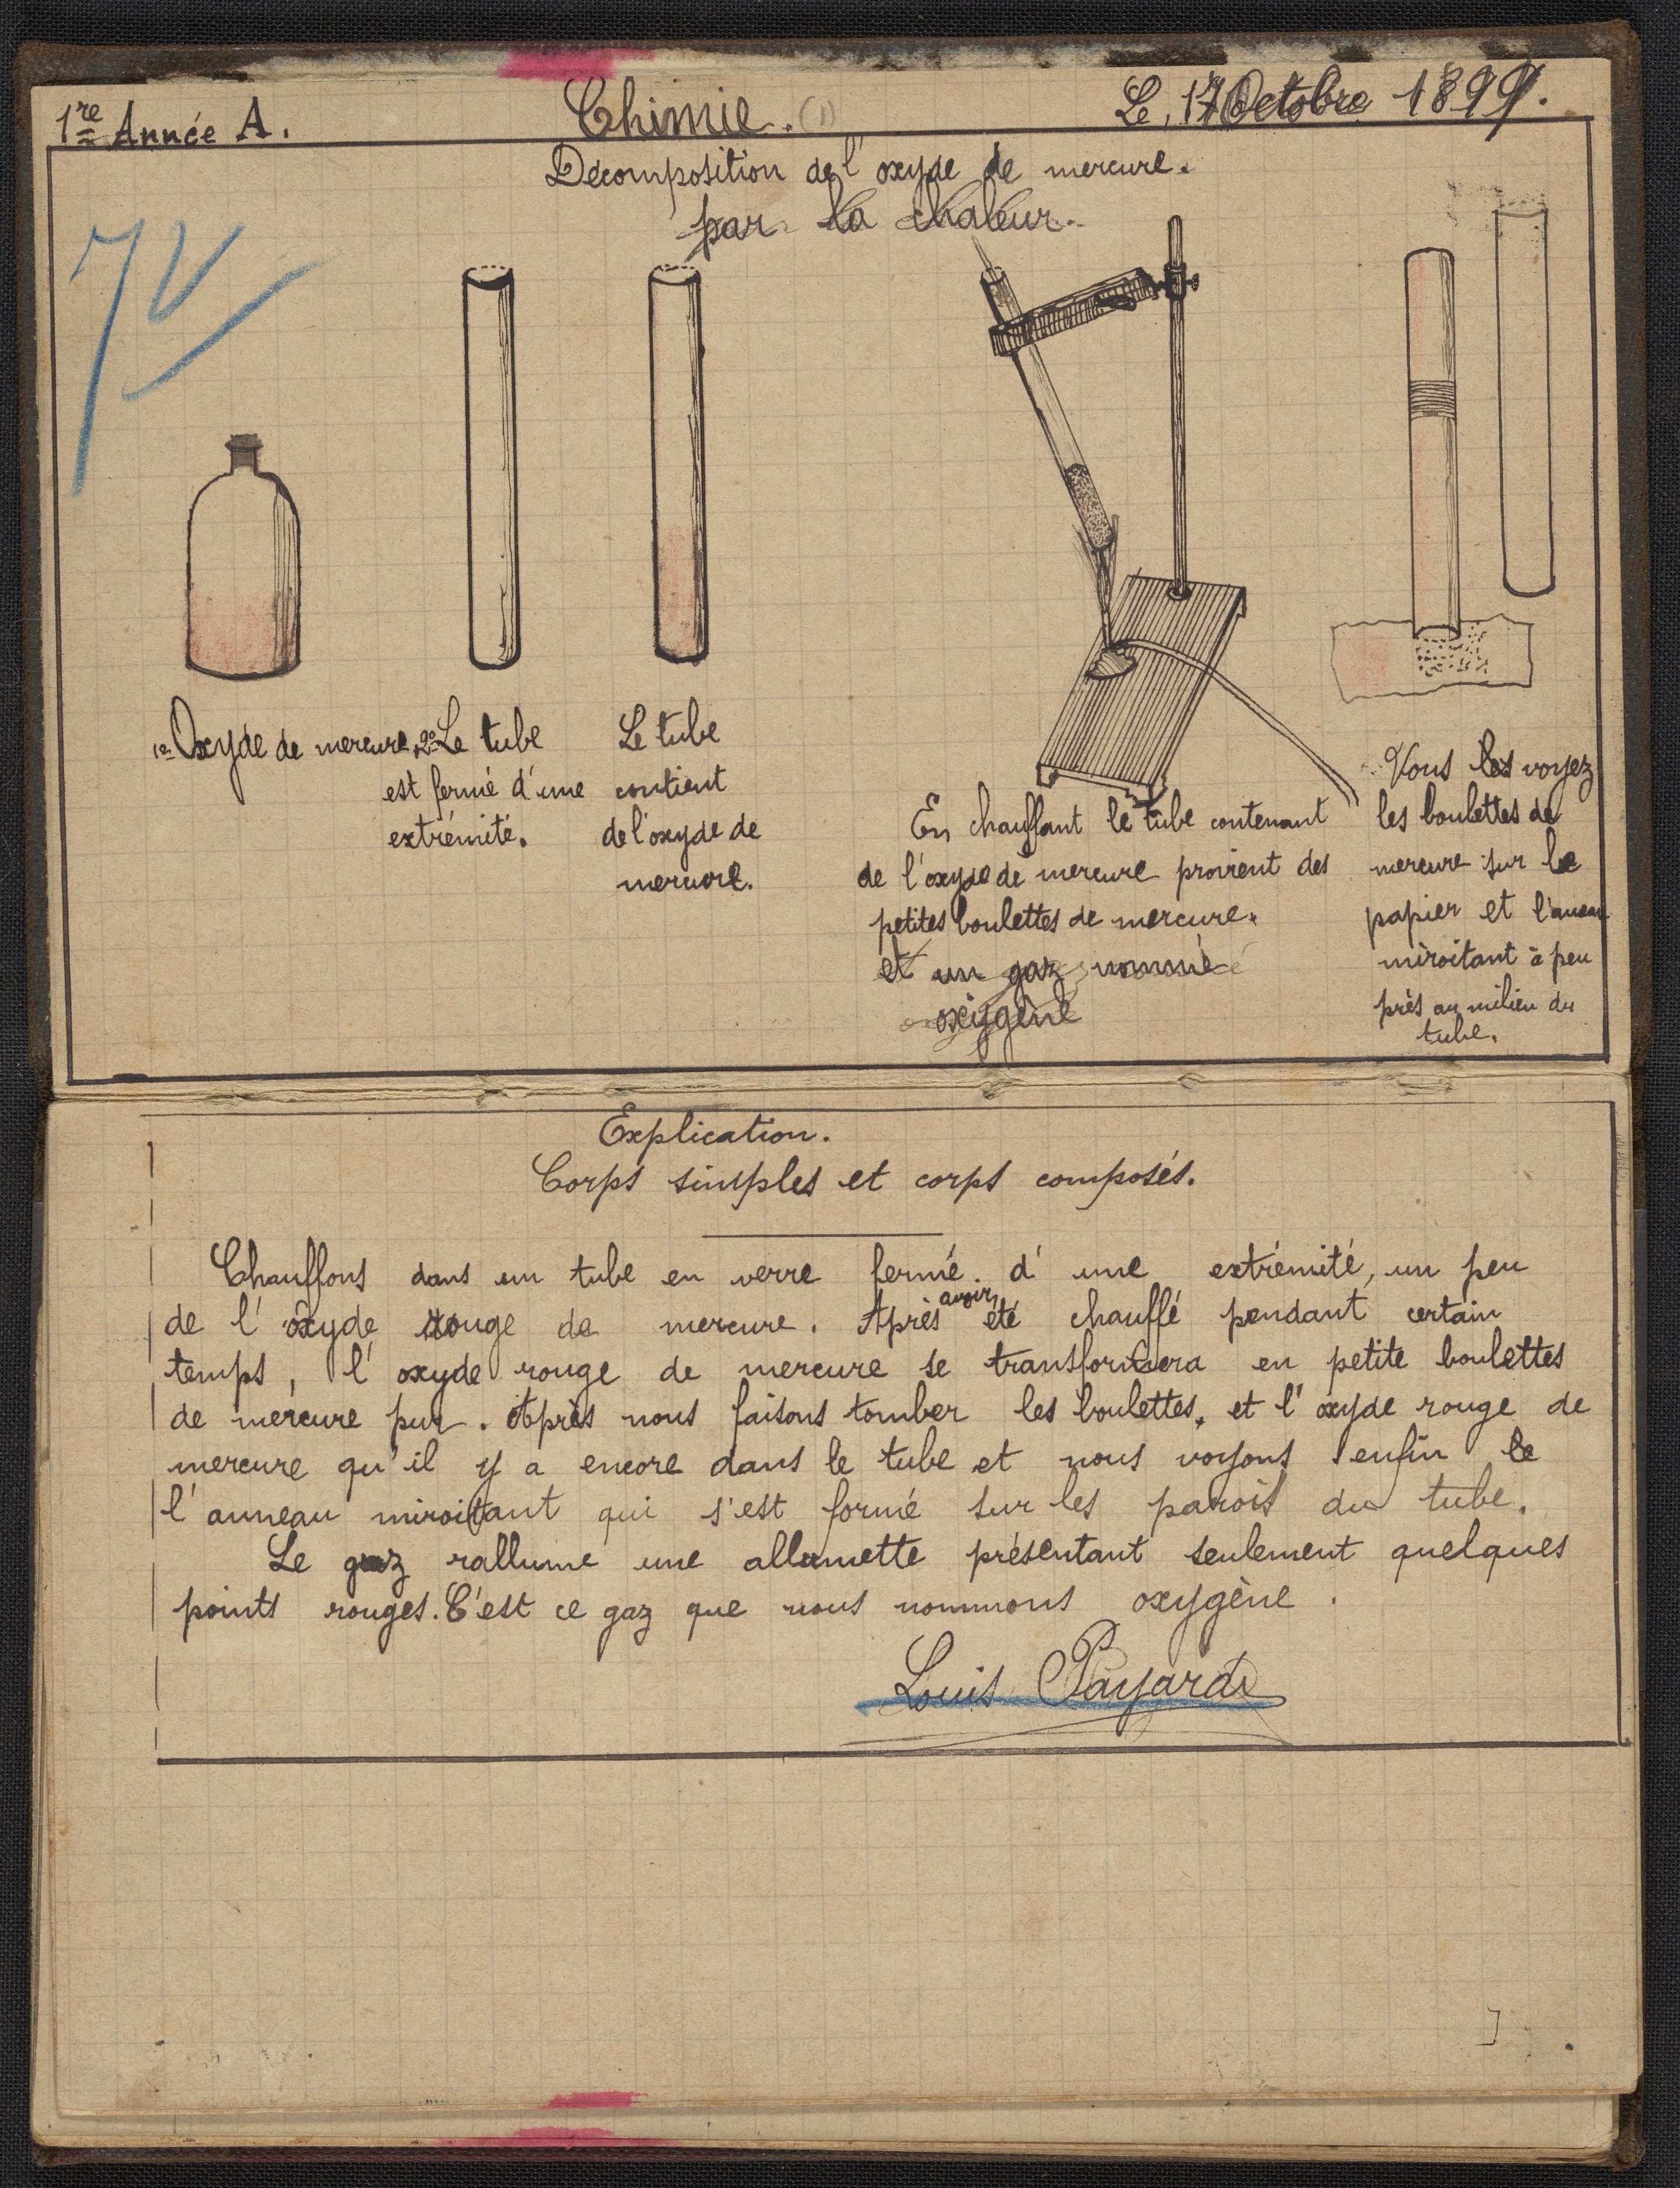 1re Année A.
Chimie. (1)
Le, 17 Octobre 1899.
Décomposition de l'oxyde de mercure.
par la chaleur.
1º Oxyde de mercure.
2º Le tube
est fermé d'une
extrémité.
Le tube
contient
de l'oxyde de
mercure.
En chauffant le tube contenant
de l'oxyde de mercure provient des
petites boulettes de mercure.
et un gaz nommé
oxygène
Vous les voyez
les boulettes de
mercure sur le
papier et l'aneau
miroitant à peu
près au milieu du
tube.
Explication.
Corps simples et corps composés.
Chauffons dans un tube en verre fermé d'une extrémité, un peu
de l'oxyde rouge de mercure. Après avoir été chauffé pendant certain
temps, l'oxyde rouge de mercure se transformera en petite boulettes
de mercure pur. Après nous faisons tomber les boulettes, et l'oxyde rouge de
mercure qu'il y a encore dans le tube et nous voyons enfin le
l'anneau miroitant qui s'est formé sur les parois du tube.
Le gaz rallume une allumette présentant seulement quelques
points rouges. C'est ce gaz que nous nommons oxygène.
Louis Payard